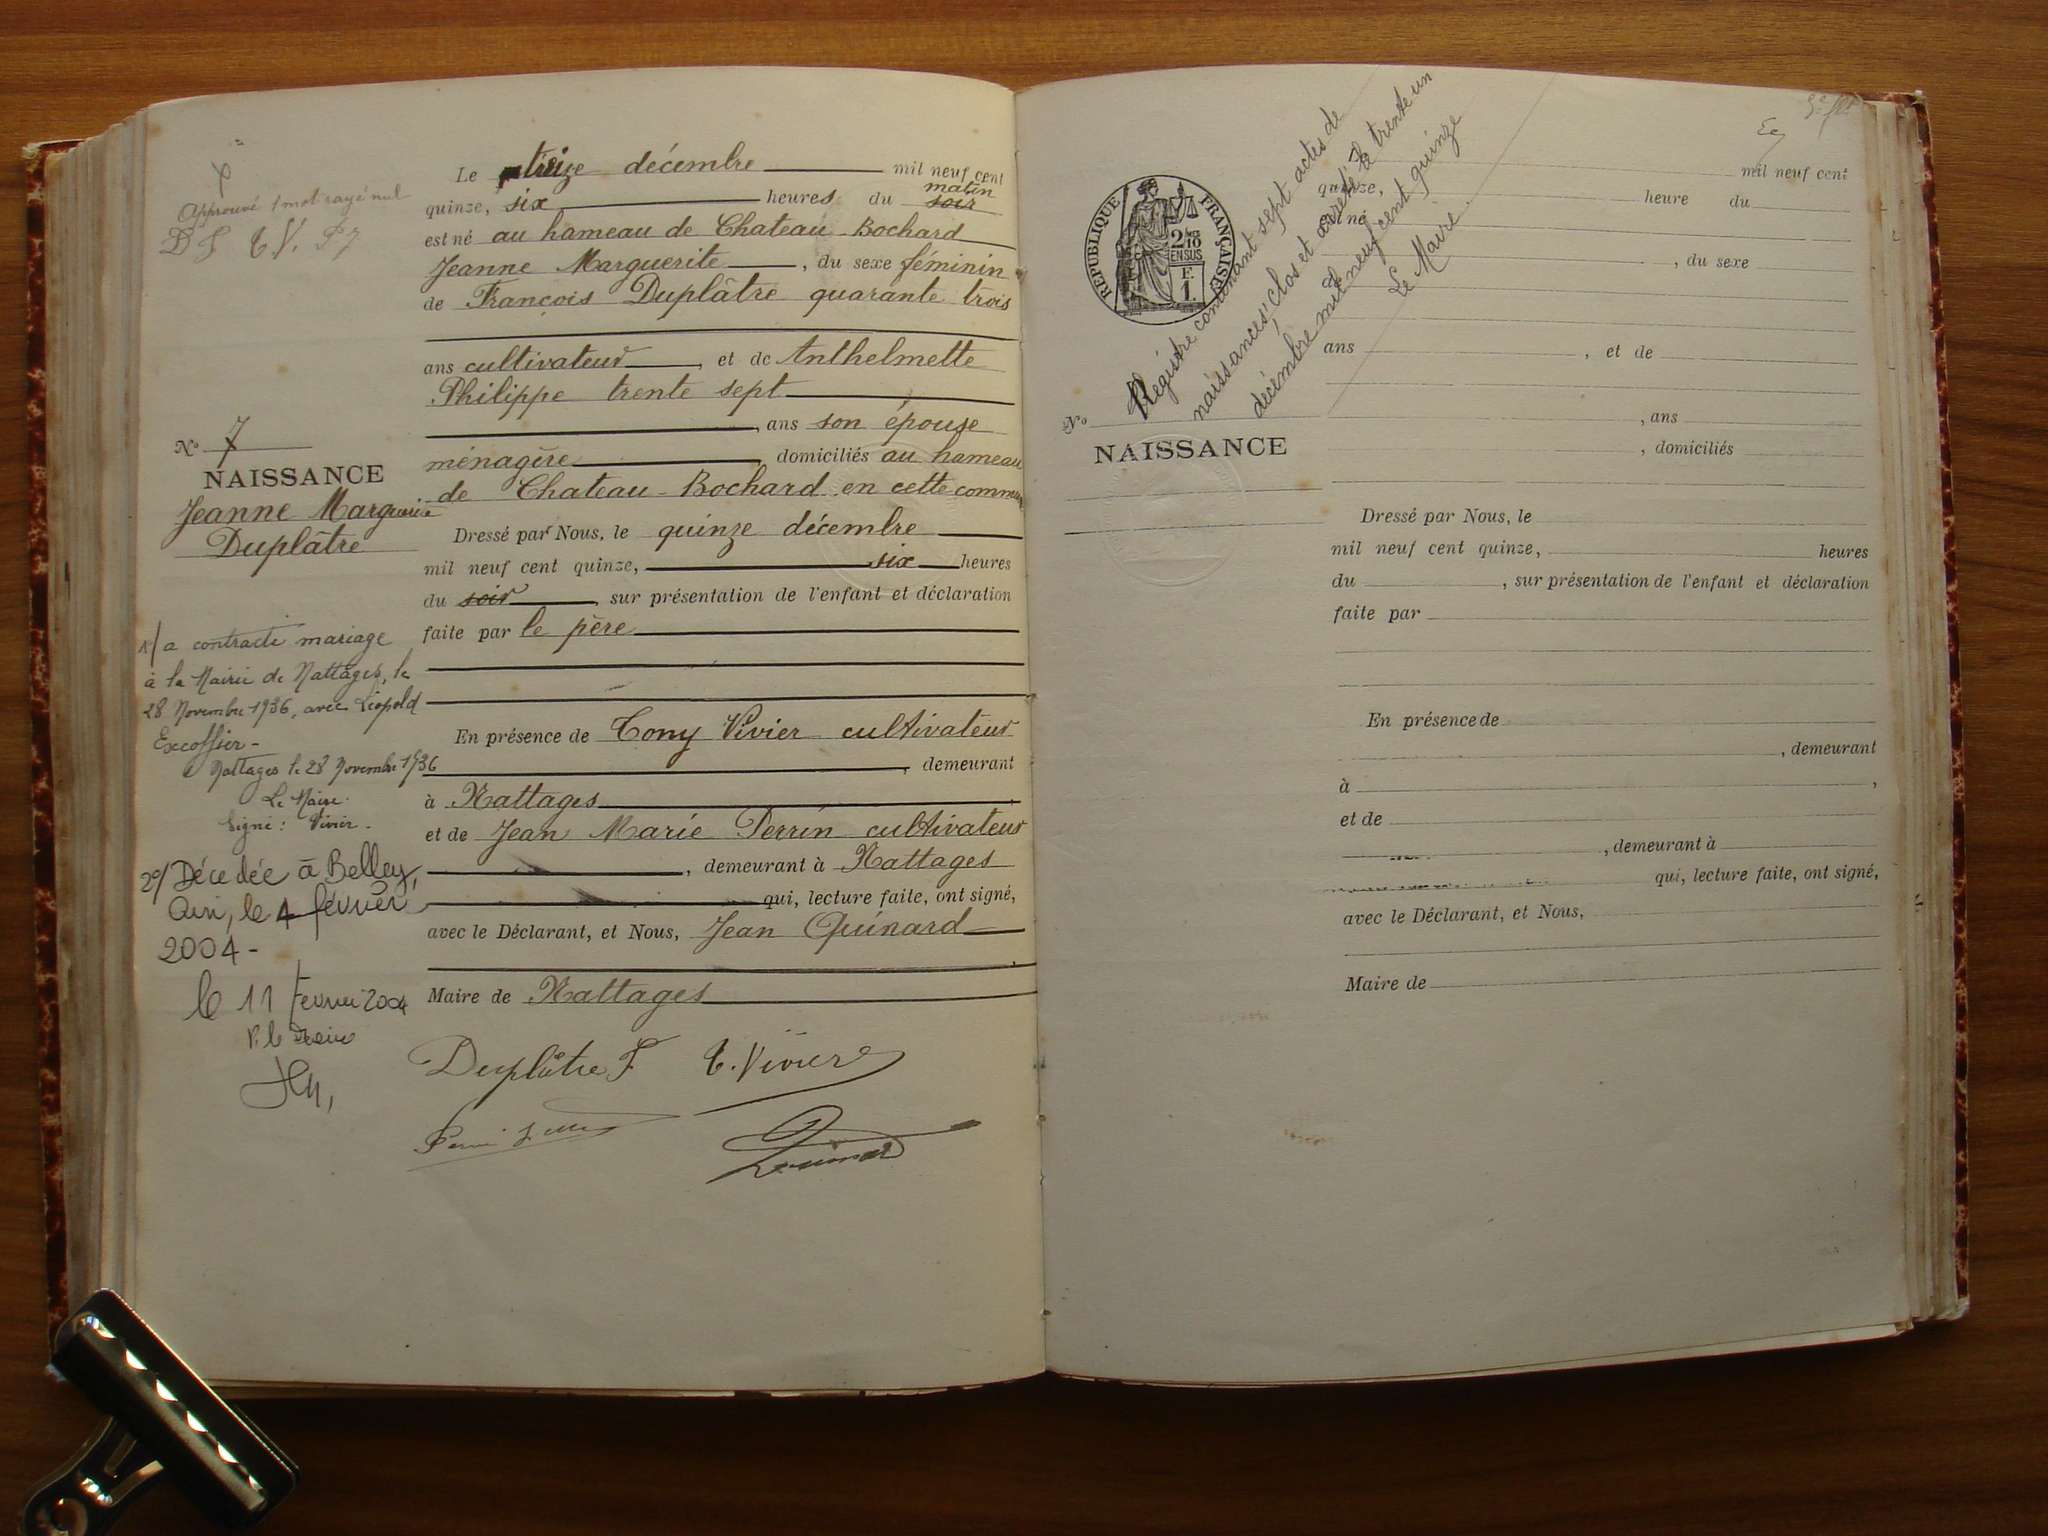 Approuvé 1 mot rayé nul
D F T V. P J
N° 7
NAISSANCE
Jeanne Marguerite
Duplâtre
1°/ a contracté mariage
à la Mairie de Nattages, le
28 Novembre 1936, avec Léopold
Excoffier -
Nattages le 28 Novembre 1936
Le Maire
Signé : Vivier -
2°/ Décédée à Belley,
Ain, le 4 février
2004 -
le 11 février 2004
P. le Maire
Le treize décembre mil neuf cent
matin
quinze, six heures du soir
est né au hameau de Chateau-Bochard
Jeanne Marguerite, du sexe féminin
de François Duplâtre quarante trois
ans cultivateur, et de Anthelmette
Philippe trente sept
, ans son épouse
ménagère, domiciliés au hameau
de Chateau-Bochard en cette commune
Dressé par Nous, le quinze décembre
mil neuf cent quinze, six heures
du soir, sur présentation de l'enfant et déclaration
faite par le père
En présence de Tony Vivier cultivateur
, demeurant
à Nattages
et de Jean Marie Perrin cultivateur
, demeurant à Nattages
qui, lecture faite, ont signé,
avec le Déclarant, et Nous, Jean Quinard
Maire de Nattages
Duplâtre F. T. Vivier
Quinard
RÉPUBLIQUE FRANÇAISE
2/10
EN SUS
F.
1.
Registre contenant sept actes de
naissances, clos et arrêté le trente un
décembre mil neuf cent quinze
Le Maire
N°
NAISSANCE
mil neuf cent
quinze, heure du
né
, du sexe
de
ans , et de
, ans
, domiciliés
Dressé par Nous, le
mil neuf cent quinze, heures
du , sur présentation de l'enfant et déclaration
faite par
En présence de
, demeurant
à ,
et de
, demeurant à
qui, lecture faite, ont signé,
avec le Déclarant, et Nous,
Maire de